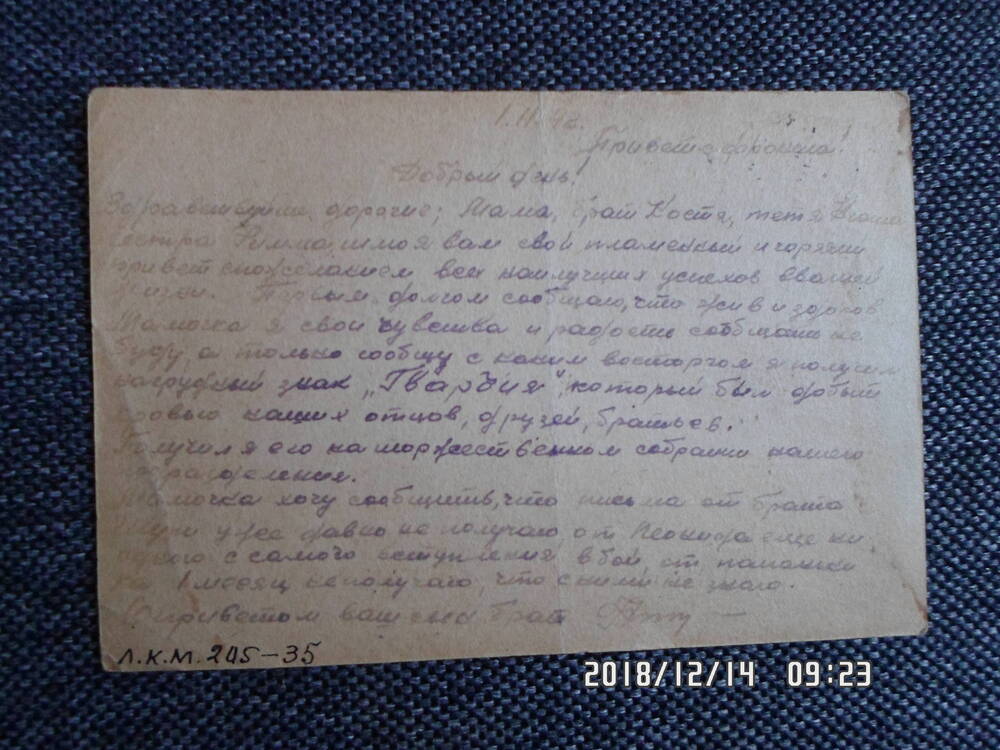 1.11.42.
Привет с фронта!
Добрый день.
Здравствуйте, дорогие: Мама, брат Костя, тетя
сестра Римма, шлю я вам свой пламенный и горячий
привет с пожеланием всех наилучших успехов в вашей
жизни. Первым долгом сообщаю, что жив и здоров
Мамочка я свои чувства и радость сообщать не
буду, а только сообщу с каким восторгом я получил
нагрудный знак „Гвардия", который был добыт
кровью наших отцов, друзей, братьев.
Получил я его на торжественном собрании нашего
подразделения.
Мамочка хочу сообщить, что письма от брата
уже давно не получаю, от Леонида еще ни
одного с самого вступления в бой, от
1 месяц не получаю, что с ними не знаю.
С приветом ваш сын брат
Л.К.М. 245-35
2018/12/14 09:23